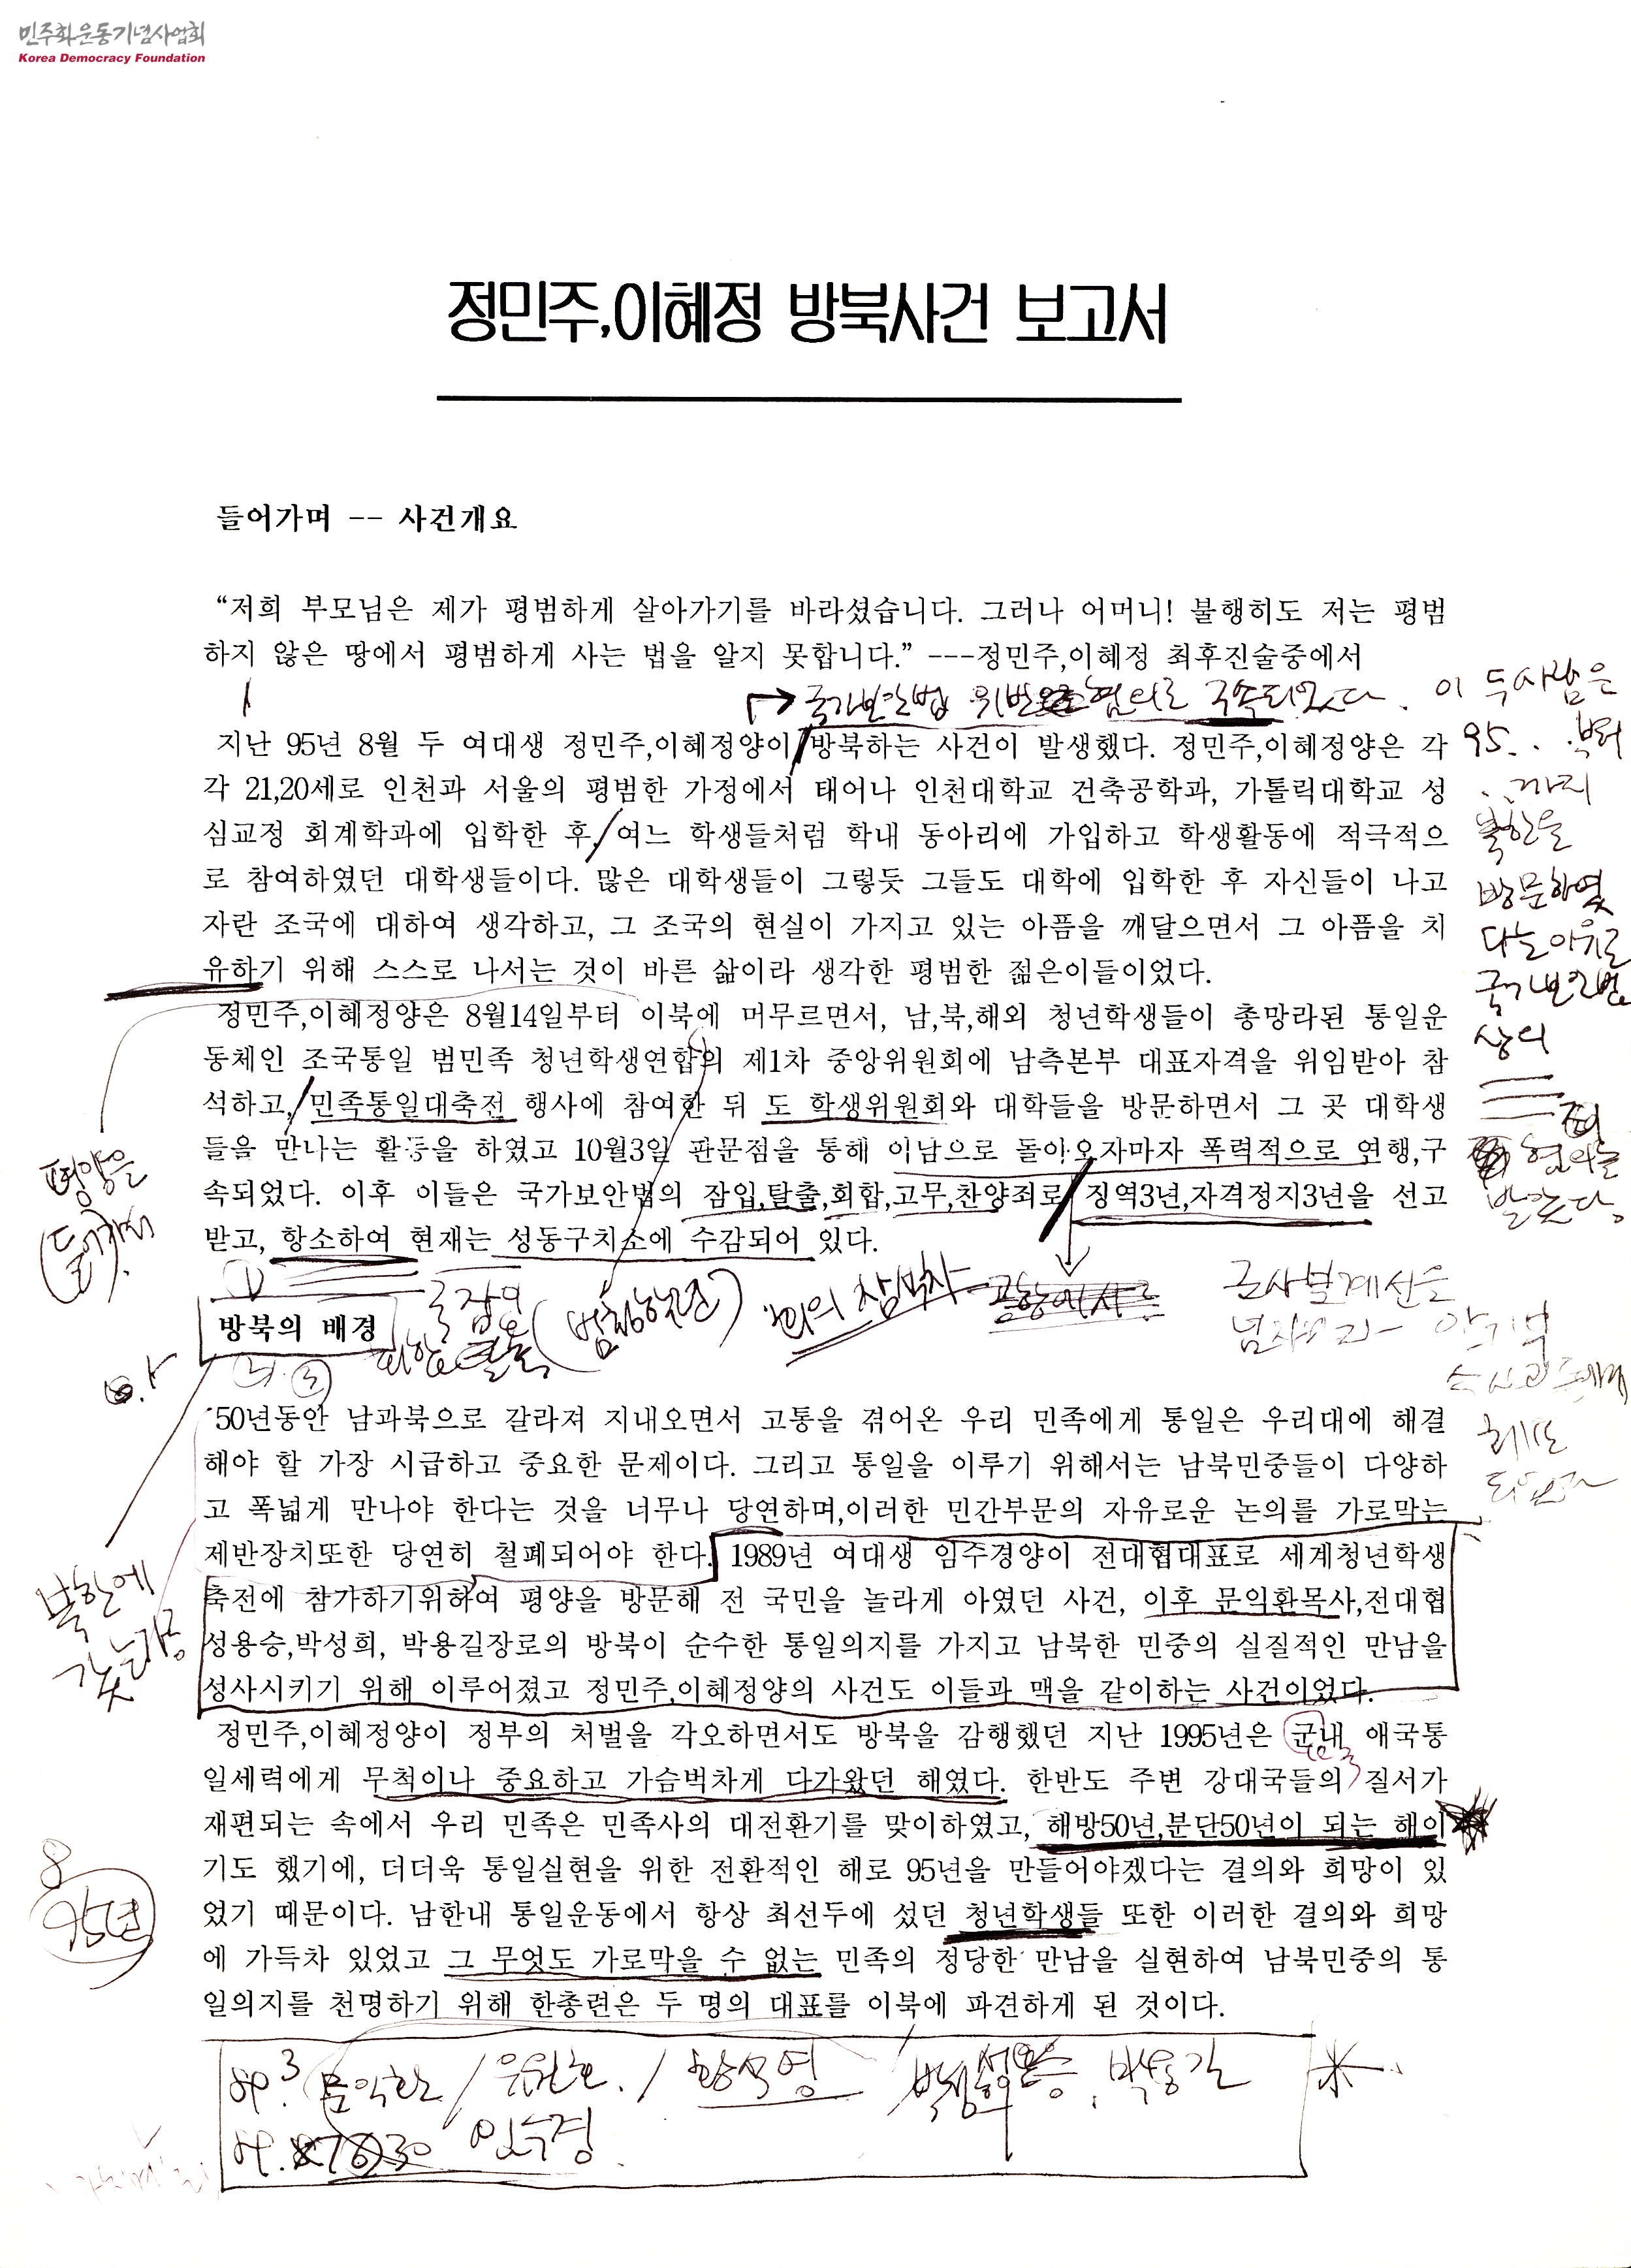 민주화운동기념사업회
Korea Democracy Foundation
정민주,이혜정 방북사건 보고서
들어가며 -- 사건개요
“저희 부모님은 제가 평범하게 살아가기를 바라셨습니다. 그러나 어머니! 불행히도 저는 평범
하지 않은 땅에서 평범하게 사는 법을 알지 못합니다.” ---정민주,이혜정 최후진술중에서
→ 국가보안법 위반 혐의로 구속되었다. 이 두사람은
지난 95년 8월 두 여대생 정민주,이혜정양이 방북하는 사건이 발생했다. 정민주,이혜정양은 각
각 21,20세로 인천과 서울의 평범한 가정에서 태어나 인천대학교 건축공학과, 가톨릭대학교 성
심교정 회계학과에 입학한 후, 여느 학생들처럼 학내 동아리에 가입하고 학생활동에 적극적으
로 참여하였던 대학생들이다. 많은 대학생들이 그렇듯 그들도 대학에 입학한 후 자신들이 나고
자란 조국에 대하여 생각하고, 그 조국의 현실이 가지고 있는 아픔을 깨달으면서 그 아픔을 치
유하기 위해 스스로 나서는 것이 바른 삶이라 생각한 평범한 젊은이들이었다.
정민주,이혜정양은 8월14일부터 이북에 머무르면서, 남,북,해외 청년학생들이 총망라된 통일운
동체인 조국통일 범민족 청년학생연합의 제1차 중앙위원회에 남측본부 대표자격을 위임받아 참
석하고, 민족통일대축전 행사에 참여한 뒤 도 학생위원회와 대학들을 방문하면서 그 곳 대학생
들을 만나는 활동을 하였고 10월3일 판문점을 통해 이남으로 돌아오자마자 폭력적으로 연행,구
속되었다. 이후 이들은 국가보안법의 잠입,탈출,회합,고무,찬양죄로 징역3년,자격정지3년을 선고
받고, 항소하여 현재는 성동구치소에 수감되어 있다.
95. . 부터
까지
북한을
방문하였
다는 이유로
국가보안법
상의
혐의를
받았다.
평양은
방북의 배경
50년동안 남과북으로 갈라져 지내오면서 고통을 겪어온 우리 민족에게 통일은 우리대에 해결
해야 할 가장 시급하고 중요한 문제이다. 그리고 통일을 이루기 위해서는 남북민중들이 다양하
고 폭넓게 만나야 한다는 것을 너무나 당연하며,이러한 민간부문의 자유로운 논의를 가로막는
제반장치또한 당연히 철폐되어야 한다. 1989년 여대생 임수경양이 전대협대표로 세계청년학생
축전에 참가하기위하여 평양을 방문해 전 국민을 놀라게 아였던 사건, 이후 문익환목사,전대협
성용승,박성희, 박용길장로의 방북이 순수한 통일의지를 가지고 남북한 민중의 실질적인 만남을
성사시키기 위해 이루어졌고 정민주,이혜정양의 사건도 이들과 맥을 같이하는 사건이었다.
정민주,이혜정양이 정부의 처벌을 각오하면서도 방북을 감행했던 지난 1995년은 군내 애국통
일세력에게 무척이나 중요하고 가슴벅차게 다가왔던 해였다. 한반도 주변 강대국들의 질서가
재편되는 속에서 우리 민족은 민족사의 대전환기를 맞이하였고, 해방50년,분단50년이 되는 해이
기도 했기에, 더더욱 통일실현을 위한 전환적인 해로 95년을 만들어야겠다는 결의와 희망이 있
었기 때문이다. 남한내 통일운동에서 항상 최선두에 섰던 청년학생들 또한 이러한 결의와 희망
에 가득차 있었고 그 무엇도 가로막을 수 없는 민족의 정당한 만남을 실현하여 남북민중의 통
일의지를 천명하기 위해 한총련은 두 명의 대표를 이북에 파견하게 된 것이다.
북한에
95년
89. 3 문익환 / 유원호. / 황석영 박성희 성용승, 박용길
임수경